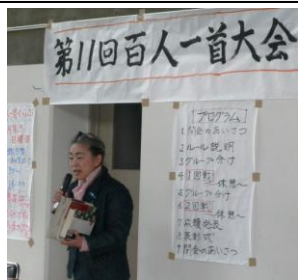 第11回百人一首大会
[プログラム]
1 開会のあいさつ
2 ルール説明
3 グループ分け
4 1回戦
〜休憩〜
5 グループ分け
6 2回戦
〜休憩〜
7 成績発表
8 表彰式
9 閉会のあいさつ